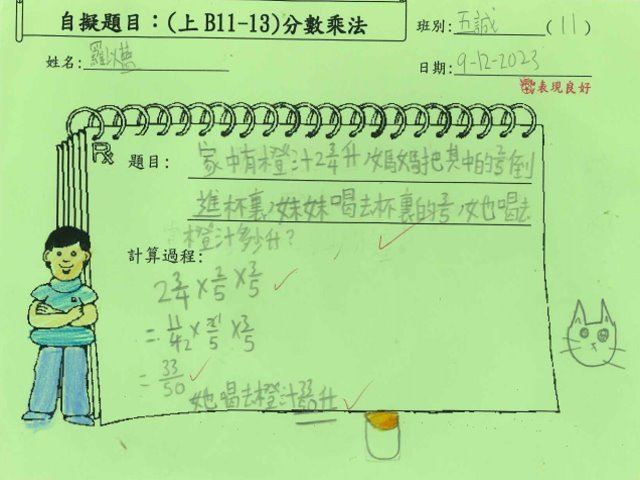 自擬題目：(上 B11-13)分數乘法
班別：五誠 (11)
姓名：羅以
日期：9-12-2023
表現良好
題目：家中有橙汁2 3/4升，媽媽把其中的2/5倒
進杯裏，妹妹喝去杯裏的3/5，她喝去
橙汁多少升？
計算過程：
2 3/4 × 2/5 × 3/5
= 11/4 2 × 2 1/5 × 3/5
= 33/50
她喝去橙汁33/50升